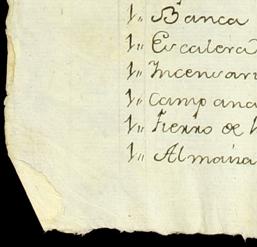 1,, Banca
1,, Escalera
1,, Incensari
1,, Campana
1,, Fierro de
1,, Almaisa